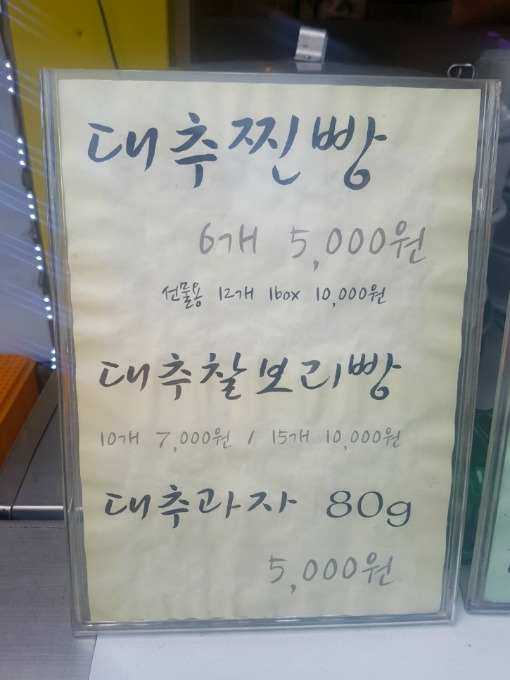 대추찐빵
6개 5,000원
선물용 12개 1box 10,000원
대추찰보리빵
10개 7,000원 / 15개 10,000원
대추과자 80g
5,000원